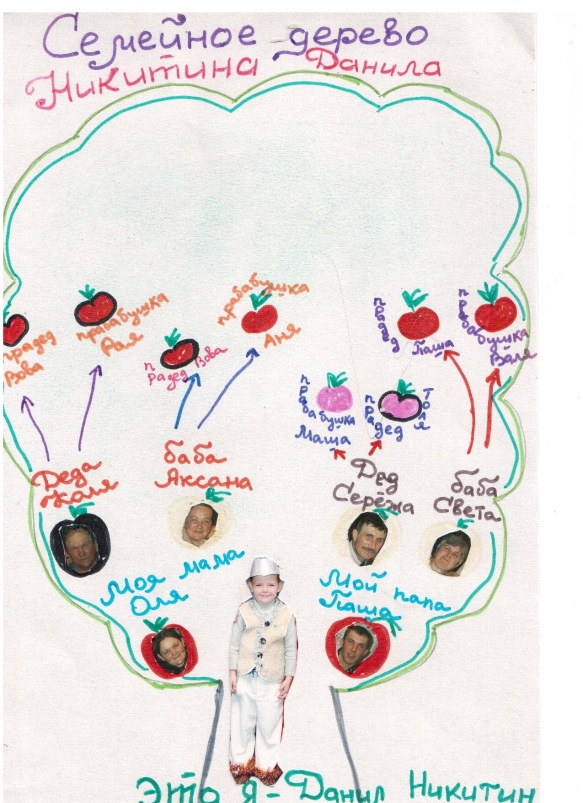 Семейное дерево
Никитина Данила
прадед
Вова
прабабушка
Рая
прадед Вова
прабабушка
Аня
прабабушка
Маша
прадед
Толя
прадед
Паша
прабабушка
Валя
Деда
Коля
баба
Аксана
Дед
Серёжа
баба
Света
Моя мама
Оля
Мой папа
Паша
Это я - Данил Никитин